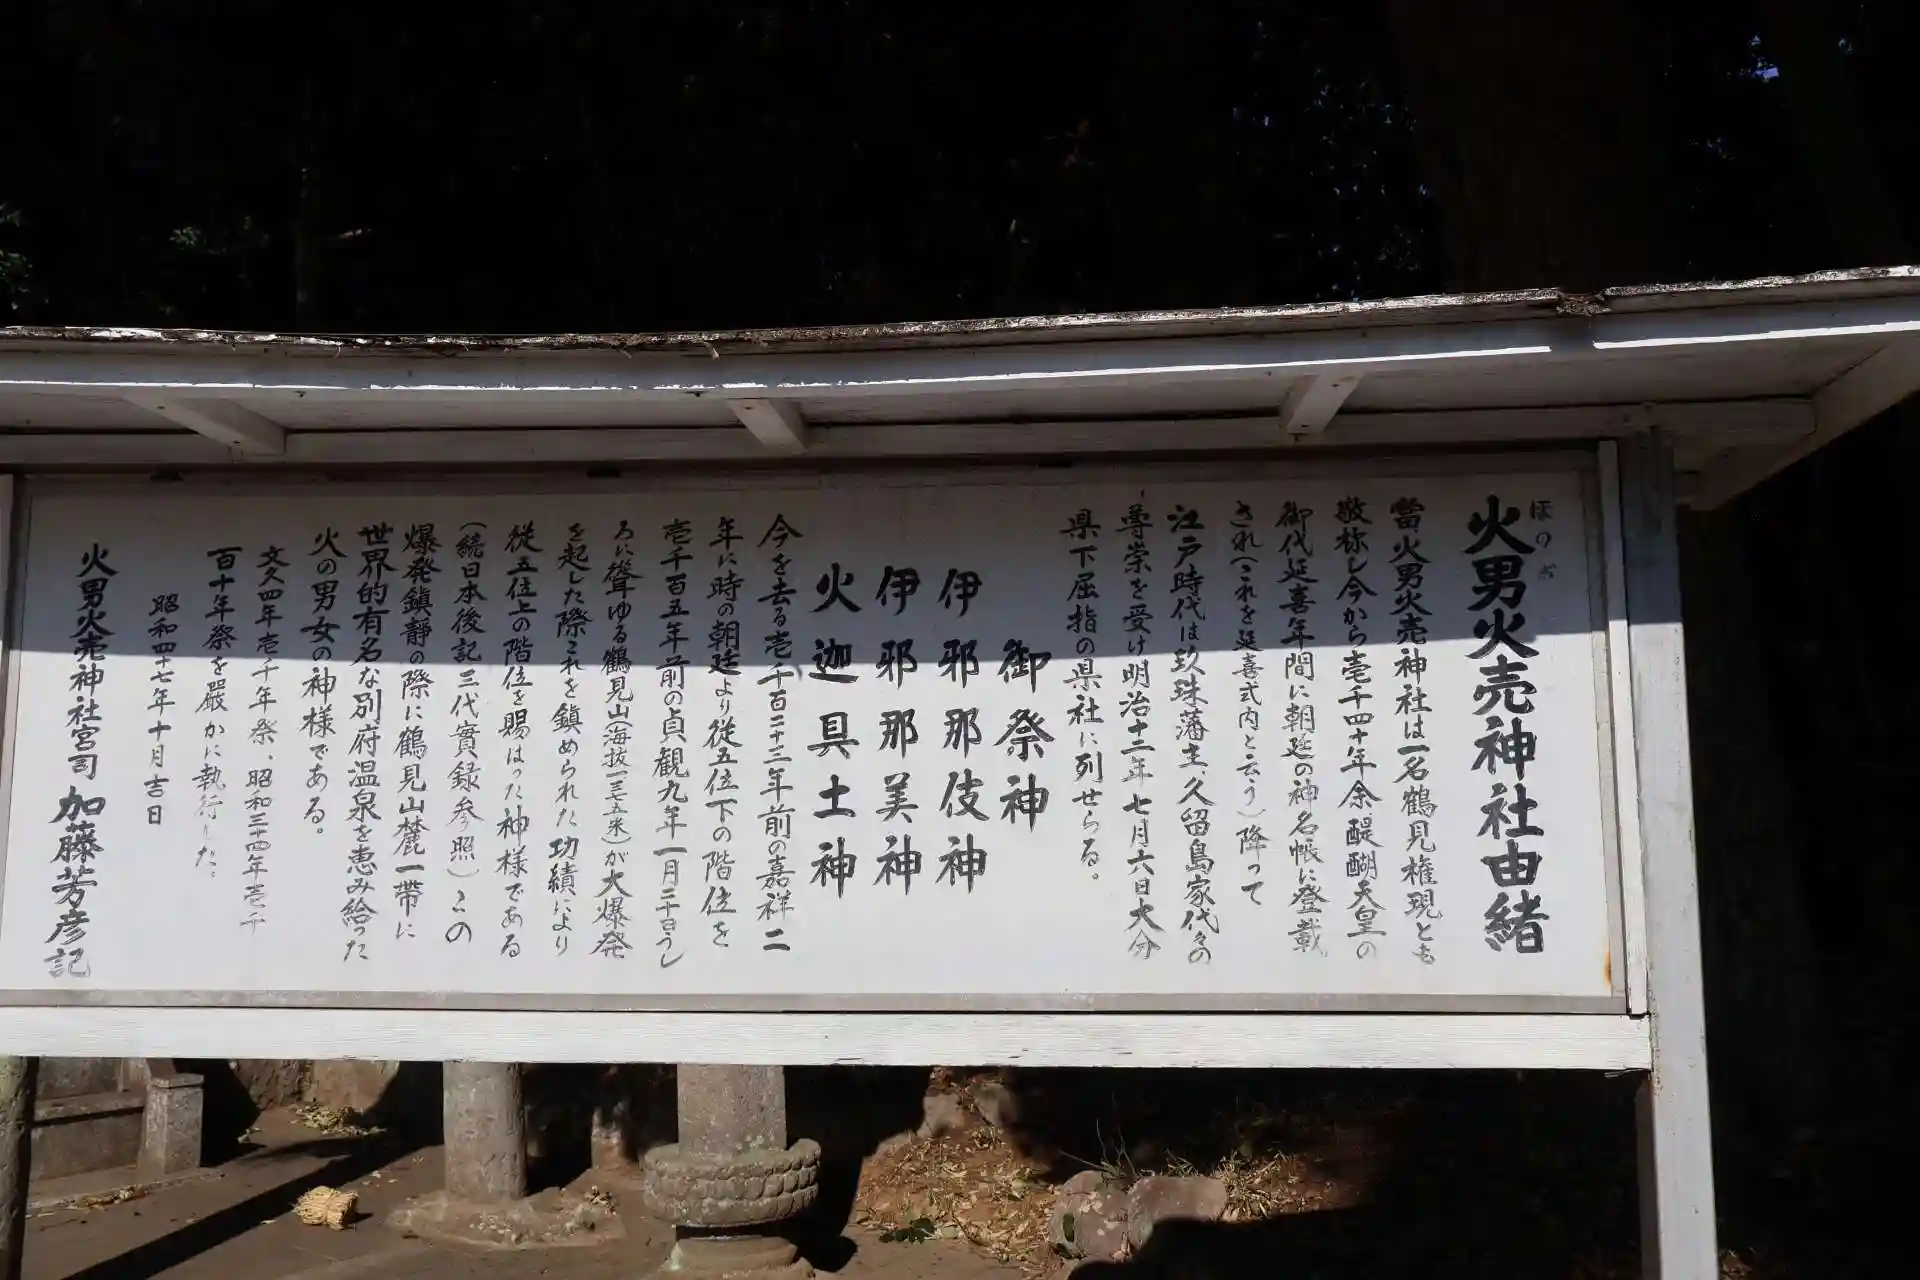 火男火売神社由緒
ほのお
當、火男火売神社は一名鶴見権現とも
敬称し今から壱千四十年余醍醐天皇の
御代延喜年間に朝廷の神名帳に登載
され(これを延喜式内と云う)降って
江戸時代は玖珠藩主、久留島家代々の
尊崇を受け明治十二年七月六日大分
県下屈指の県社に列せらる。
御祭神
伊邪那伎神
伊邪那美神
火迦具土神
今を去る壱千百二十三年前の嘉祥二
年に時の朝廷より従五位下の階位を
壱千百五年前の貞観九年一月二十日うし
ろに聳ゆる鶴見山(海抜一三七五米)が大爆発
を起した際これを鎮められた功績により
従五位上の階位を賜はった神様である
(続日本後記三代實録参照)この
爆発鎮静の際に鶴見山麓一帯に
世界的有名な別府温泉を恵み給った
火の男女の神様である。
文久四年壱千年祭、昭和三十四年壱千
百十年祭を厳かに執行した。
昭和四十七年十月吉日
火男火売神社宮司 加藤芳彦記